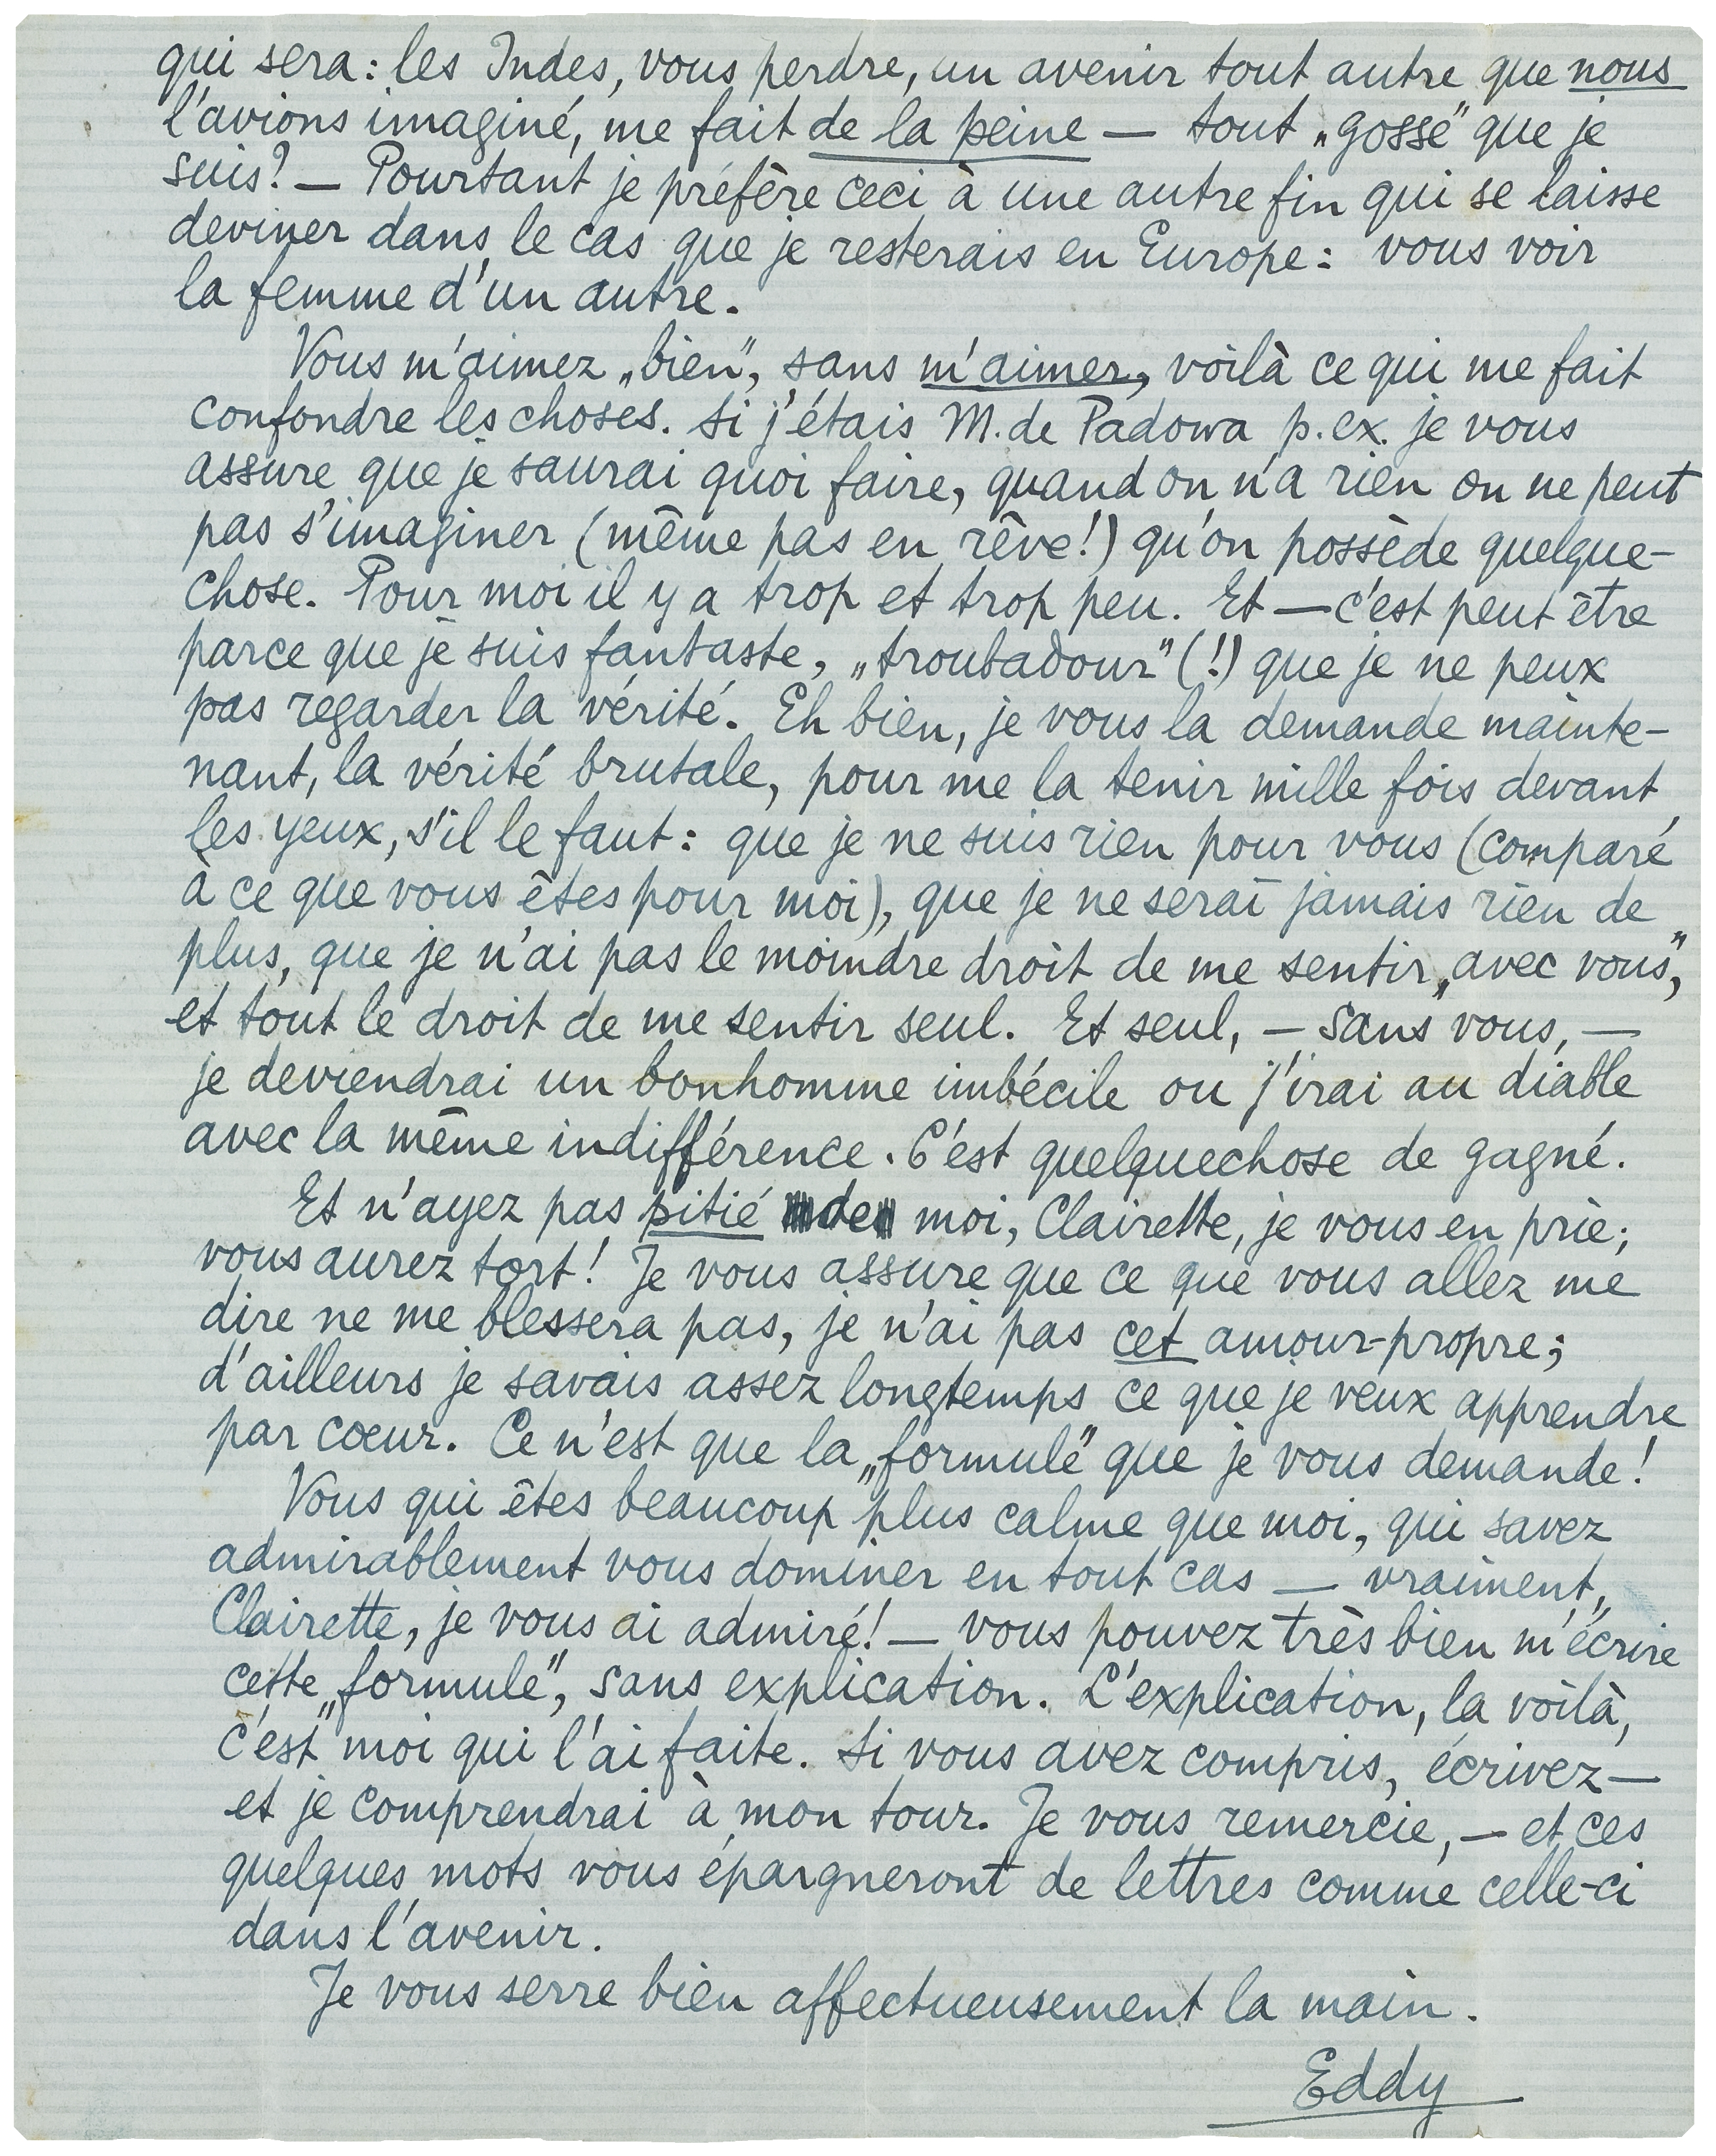 qui sera: les Indes, vous perdre, un avenir tout autre que nous
l'avions imaginé, me fait de la peine — tout „gosse" que je
suis? — Pourtant je préfère ceci à une autre fin qui se laisse
deviner dans le cas que je resterais en Europe: vous voir
la femme d'un autre.
Vous m'aimez „bien", sans m'aimer, voilà ce qui me fait
confondre les choses. Si j'étais M. de Padowa p. ex. je vous
assure que je saurai quoi faire, quand on n'a rien on ne peut
pas s'imaginer (même pas en rêve!) qu'on possède quelque-
chose. Pour moi il y a trop et trop peu. Et — c'est peut être
parce que je suis fantaste, „troubadour" (!) que je ne peux
pas regarder la vérité. Eh bien, je vous la demande mainte-
nant, la vérité brutale, pour me la tenir mille fois devant
les yeux, s'il le faut: que je ne suis rien pour vous (comparé
à ce que vous êtes pour moi), que je ne serai jamais rien de
plus, que je n'ai pas le moindre droit de me sentir „avec vous",
et tout le droit de me sentir seul. Et seul, — sans vous, —
je deviendrai un bonhomme imbécile ou j'irai au diable
avec la même indifférence. C'est quelquechose de gagné.
Et n'ayez pas pitié de moi, Clairette, je vous en prie;
vous aurez tort! Je vous assure que ce que vous allez me
dire ne me blessera pas, je n'ai pas cet amour-propre;
d'ailleurs je savais assez longtemps ce que je veux apprendre
par cœur. Ce n'est que la „formule" que je vous demande!
Vous qui êtes beaucoup plus calme que moi, qui savez
admirablement vous dominer en tout cas — vraiment,
Clairette, je vous ai admiré! — vous pouvez très bien m'écrire
cette „formule", sans explication. L'explication, la voilà,
c'est moi qui l'ai faite. Si vous avez compris, écrivez —
et je comprendrai à mon tour. Je vous remercie, — et ces
quelques mots vous épargneront de lettres comme celle-ci
dans l'avenir.
Je vous serre bien affectueusement la main.
Eddy